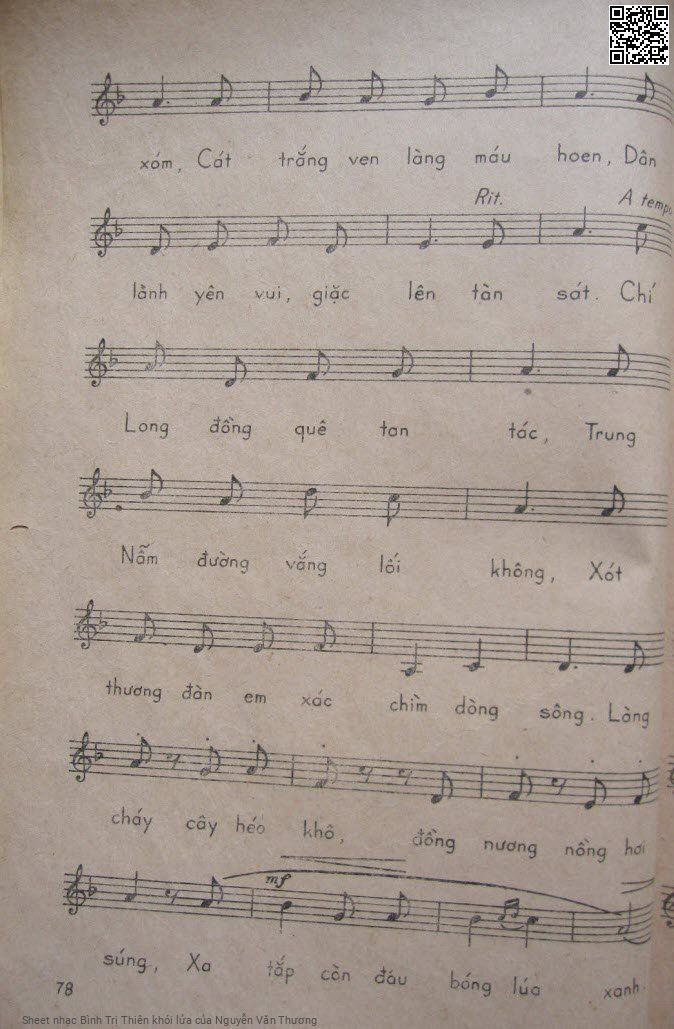 xóm, Cát trắng ven làng máu hoen, Dân
Rit. A tempo
lành yên vui, giặc lên tàn sát. Chí
Long đồng quê tan tác, Trung
Nẫm đường vắng lối không, Xót
thương đàn em xác chìm dòng sông. Làng
cháy cây héo khô, đồng nương nồng hơi
mf
súng, Xa tắp còn đâu bóng lúa xanh
78
Sheet nhạc Bình Trị Thiên khói lửa của Nguyễn Văn Thương